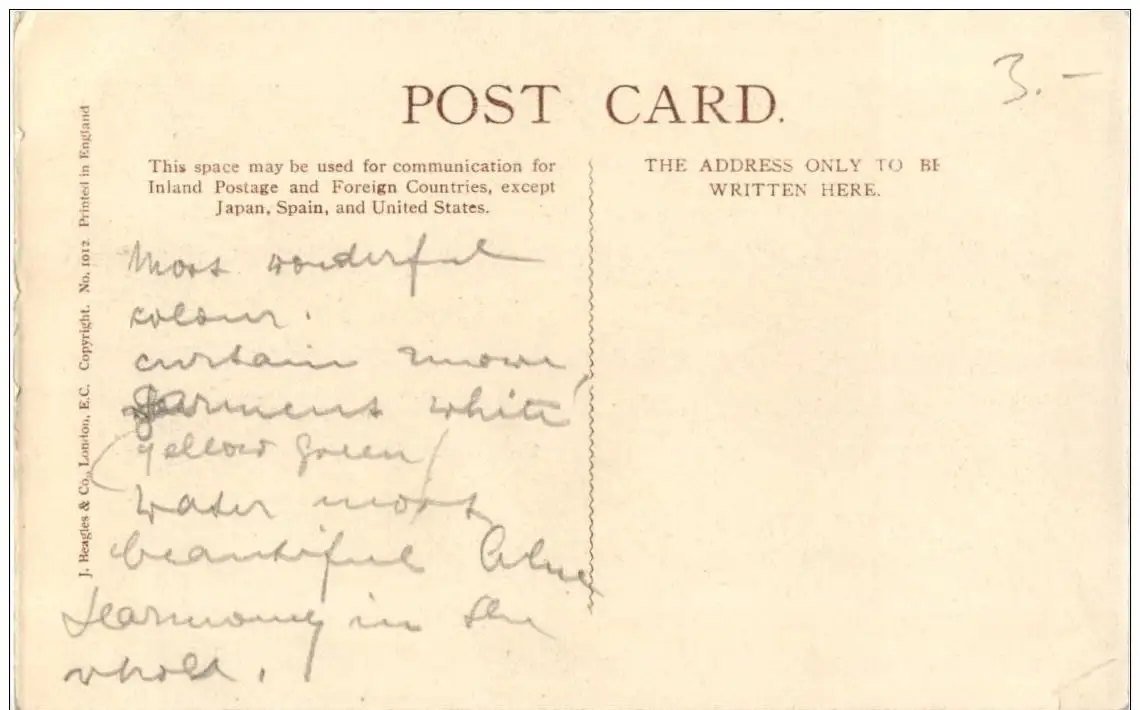 3. –
POST CARD.
This space may be used for communication for
Inland Postage and Foreign Countries, except
Japan, Spain, and United States.
THE ADDRESS ONLY TO BE
WRITTEN HERE.
J. Beagles & Co., London, E.C. Copyright. No. 1012. Printed in England
Most wonderful
colour.
curtain mauve,
garment white
(yellow green)
water most
beautiful blue
Harmony in the
whole.